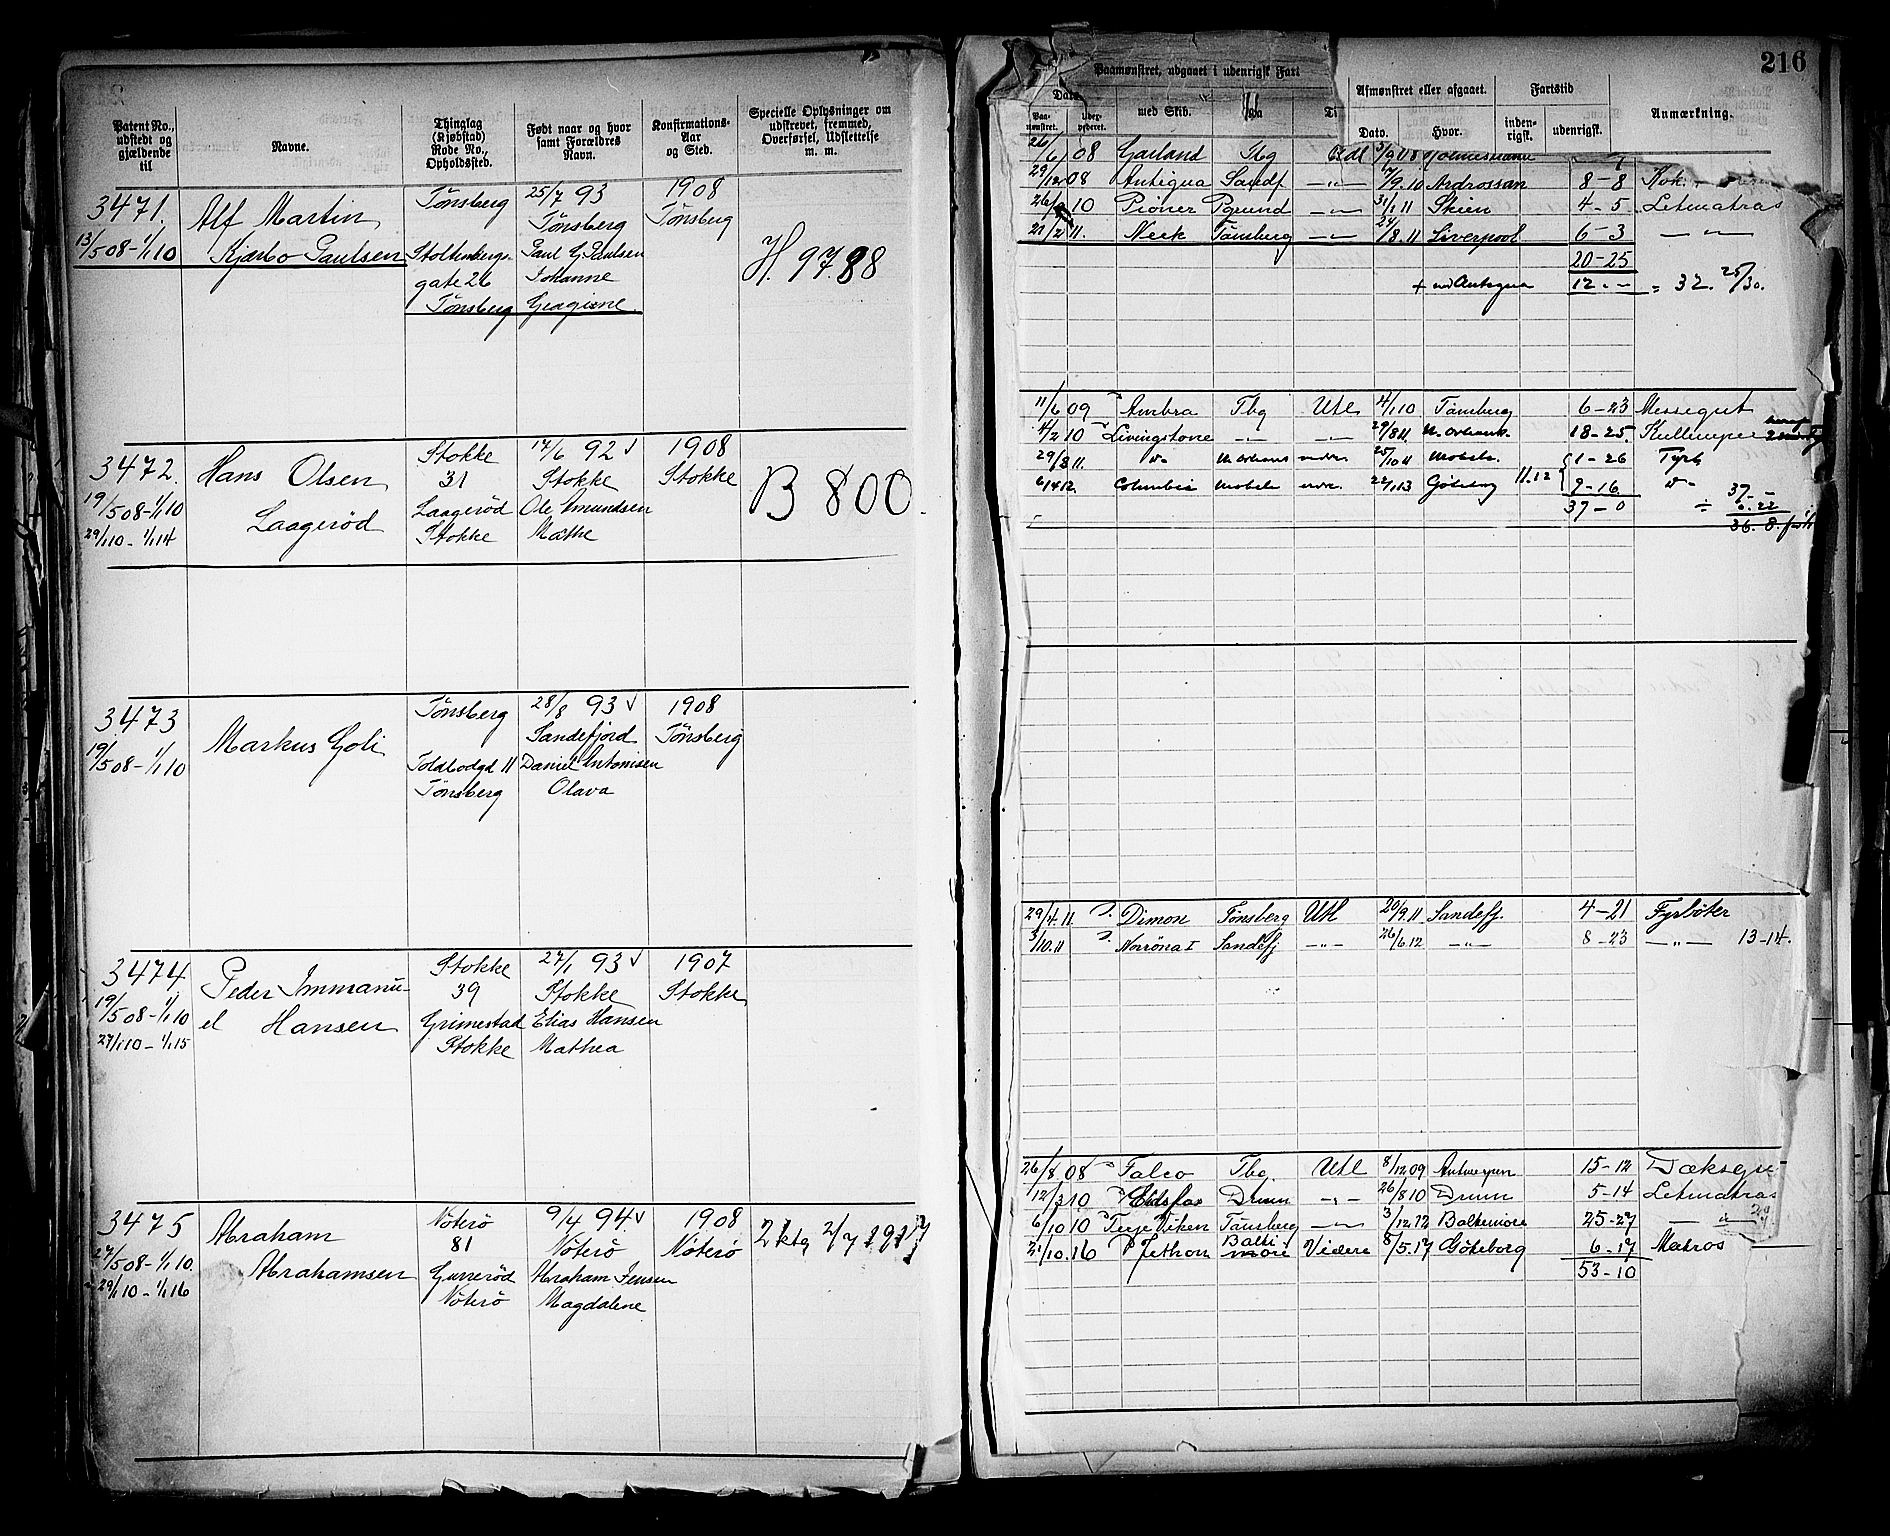 216
Patent No., udstedt og gjældende til
Navne.
Thinglag (Kjøbstad) Rode No., Opholdssted.
Født naar og hvor samt Forældres Navn.
Konfirmations-Aar og Sted.
Specielle Oplysninger om udskrevet, fremmed, Overførsel, Udslettelse m. m.
3471.
13/5 08 - 1/1 10
Alf Martin
Kjærbo Paulsen
Tønsberg
Stoltenbergs-
gate 26
Tønsberg
25/7 93
Tønsberg
Paul G. Paulsen
Johanne
1908
Tønsberg
H. 9788
3472.
19/5 08 - 1/1 10
29/1 10 - 1/1 14
Hans Olsen
Laagerød
Stokke
31
Laagerød
Stokke
17/6 92
Stokke
Ole Amundsen
Mathe
1908
Stokke
B 800.
3473
19/5 08 - 1/1 10
Markus Goli
Tønsberg
Toldbodgd 11
Tønsberg
28/8 93
Sandefjord
Daniel Antonisen
Olava
1908
Tønsberg
3474
19/5 08 - 1/1 10
27/1 10 - 1/1 15
Peder Immanu-
el Hansen
Stokke
39
Grimestad
Stokke
27/1 93
Stokke
Elias Hansen
Mathea
1907
Stokke
3475
27/5 08 - 1/1 10.
29/1 10 - 1/1 16
Abraham
Abrahamsen
Nøterø
81
Nøterø
9/4 94
Nøterø
Abraham Jensen
Magdalene
1908
Nøterø
2 ktg 2/7 1917
Paamønstret, udgaaet i udenrigsk Fart
Afmønstret eller afgaaet.
Fartstid
Anmærkning.
Paa-mønstret.
med Skib.
Dato.
Hvor.
inden-rigsk.
udenrigsk.
26/6 08 Garland Tbg
29/12 08 Antigua Sandf —„— 17/9.10 Ardrossan 8-8
10 Pioner Pgrund —„— 31/1 11 Skien 4-5 Letmatros
21/2 11. Neck Tønsberg —„— 24/8.11 Liverpool 6-3 —„—
20-25
Antigua 12 - - = 32. 25/30.
11/6 09 Ambra Tbg Utl 4/1 10 Tønsberg 6-23 Messegut
4/2 10 Livingstone —„— —„— 29/8 11. 18-25.
29/8 11. 25/10 11 Mobile 1-26
6/1 12. Columbia Mobile 22/1 13 Gøteborg 11.12 9-16
37-0
37 -
36. 8.
29/4.11 Dimon Tønsberg Utl 20/9.11 Sandefj. 4-21 Fyrbøter
3/10.11 Norrøna I Sandefj —„— 26/6.12 —„— 8-23 —„— 13-14.
26/8 08 Falco Tbg. Utl 8/12 09 Antwerpen 15-12 Dæksgut
12/3 10 Eidsfos Drmn —„— 26/8 10 Drmn 5-14 Letmatros
6/10 10 Terje Viken Tønsberg —„— 3/12.12 Baltimore 25-27
21/10.16 Jethon Baltimore Videre 8/5.17 Gøteborg 6-17 Matros
53-10